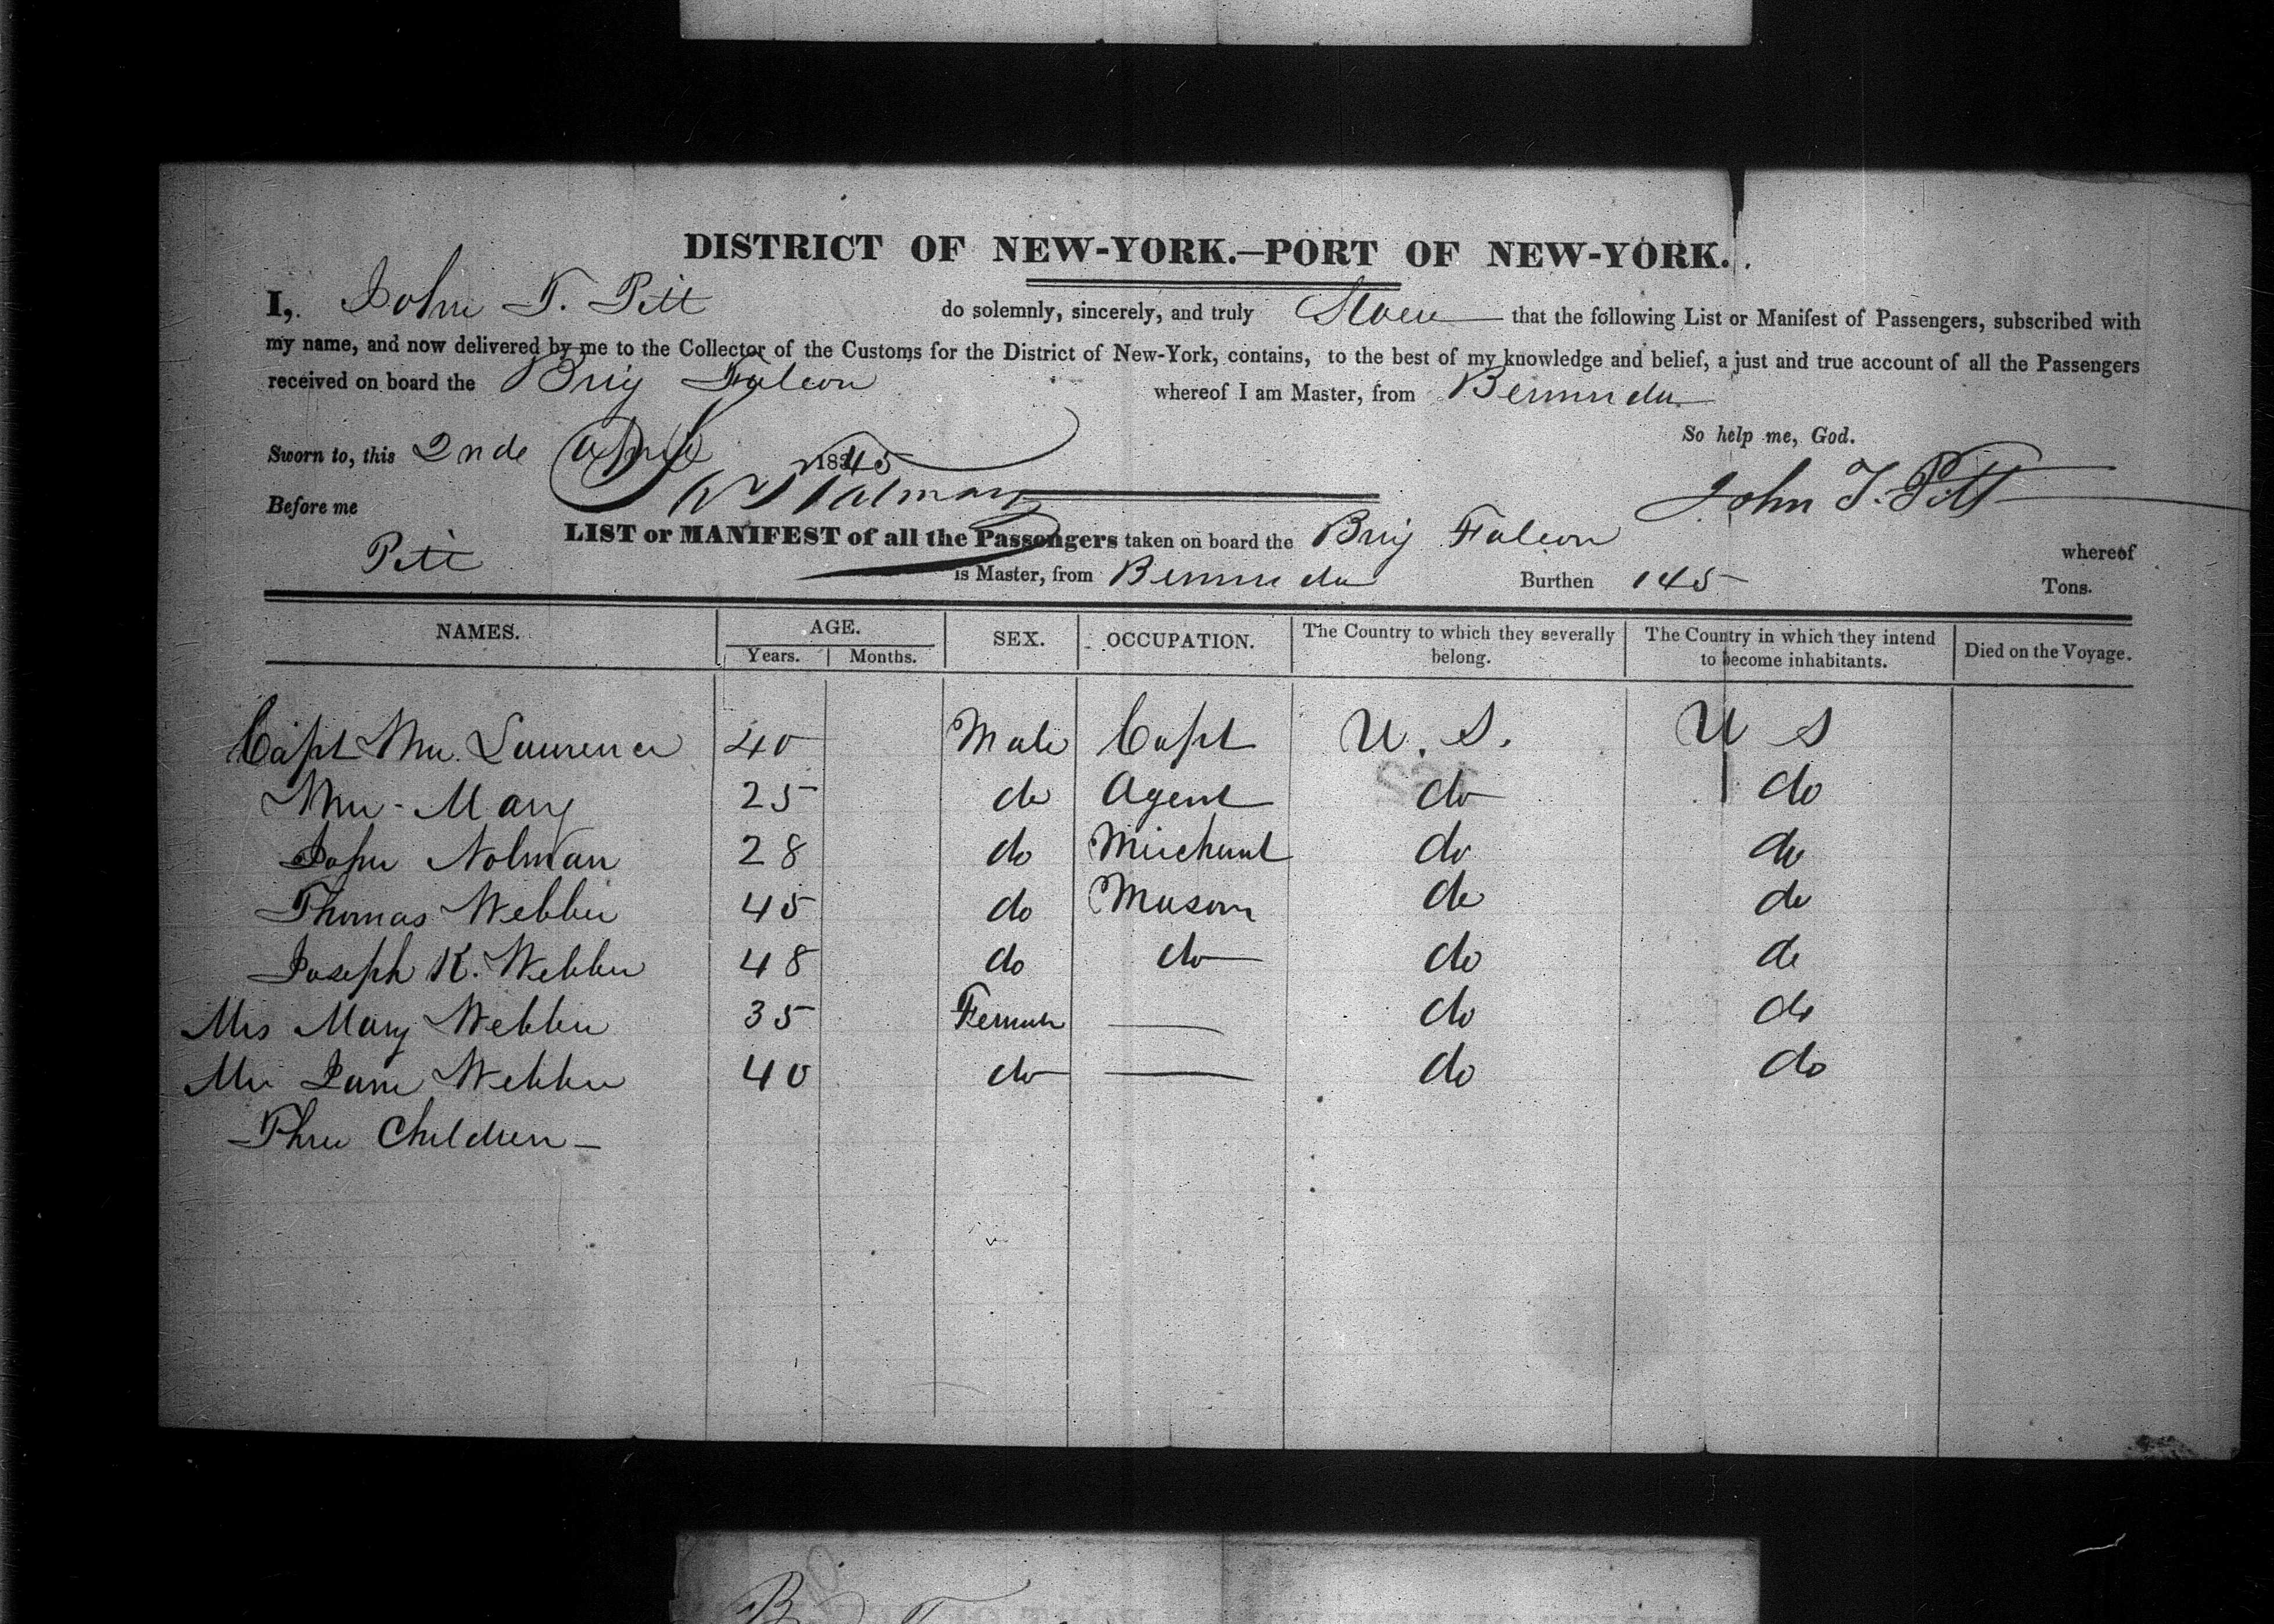 DISTRICT OF NEW-YORK.—PORT OF NEW-YORK.
I, John T. Pitt do solemnly, sincerely, and truly Swear that the following List or Manifest of Passengers, subscribed with
my name, and now delivered by me to the Collector of the Customs for the District of New-York, contains, to the best of my knowledge and belief, a just and true account of all the Passengers
received on board the Brig Falcon whereof I am Master, from Bermuda
So help me, God.
Sworn to, this 2nde 1845
Before me John T. Pitt
LIST or MANIFEST of all the Passengers taken on board the Brig Falcon whereof
Pitt is Master, from Bermuda Burthen 145 Tons.
NAMES. AGE. SEX. OCCUPATION. The Country to which they severally belong. The Country in which they intend to become inhabitants. Died on the Voyage.
Years. Months.
Capt Wm. Laurence 40 Male Capt U. S. U S
Wm - Mary 25 do Agent do do
John Nolman 28 do Merchant do do
Thomas Webber 45 do Mason do do
Joseph K. Webber 48 do do do do
Mrs Mary Webber 35 Female — do do
Mrs Jane Webber 40 do — do do
Three Children —